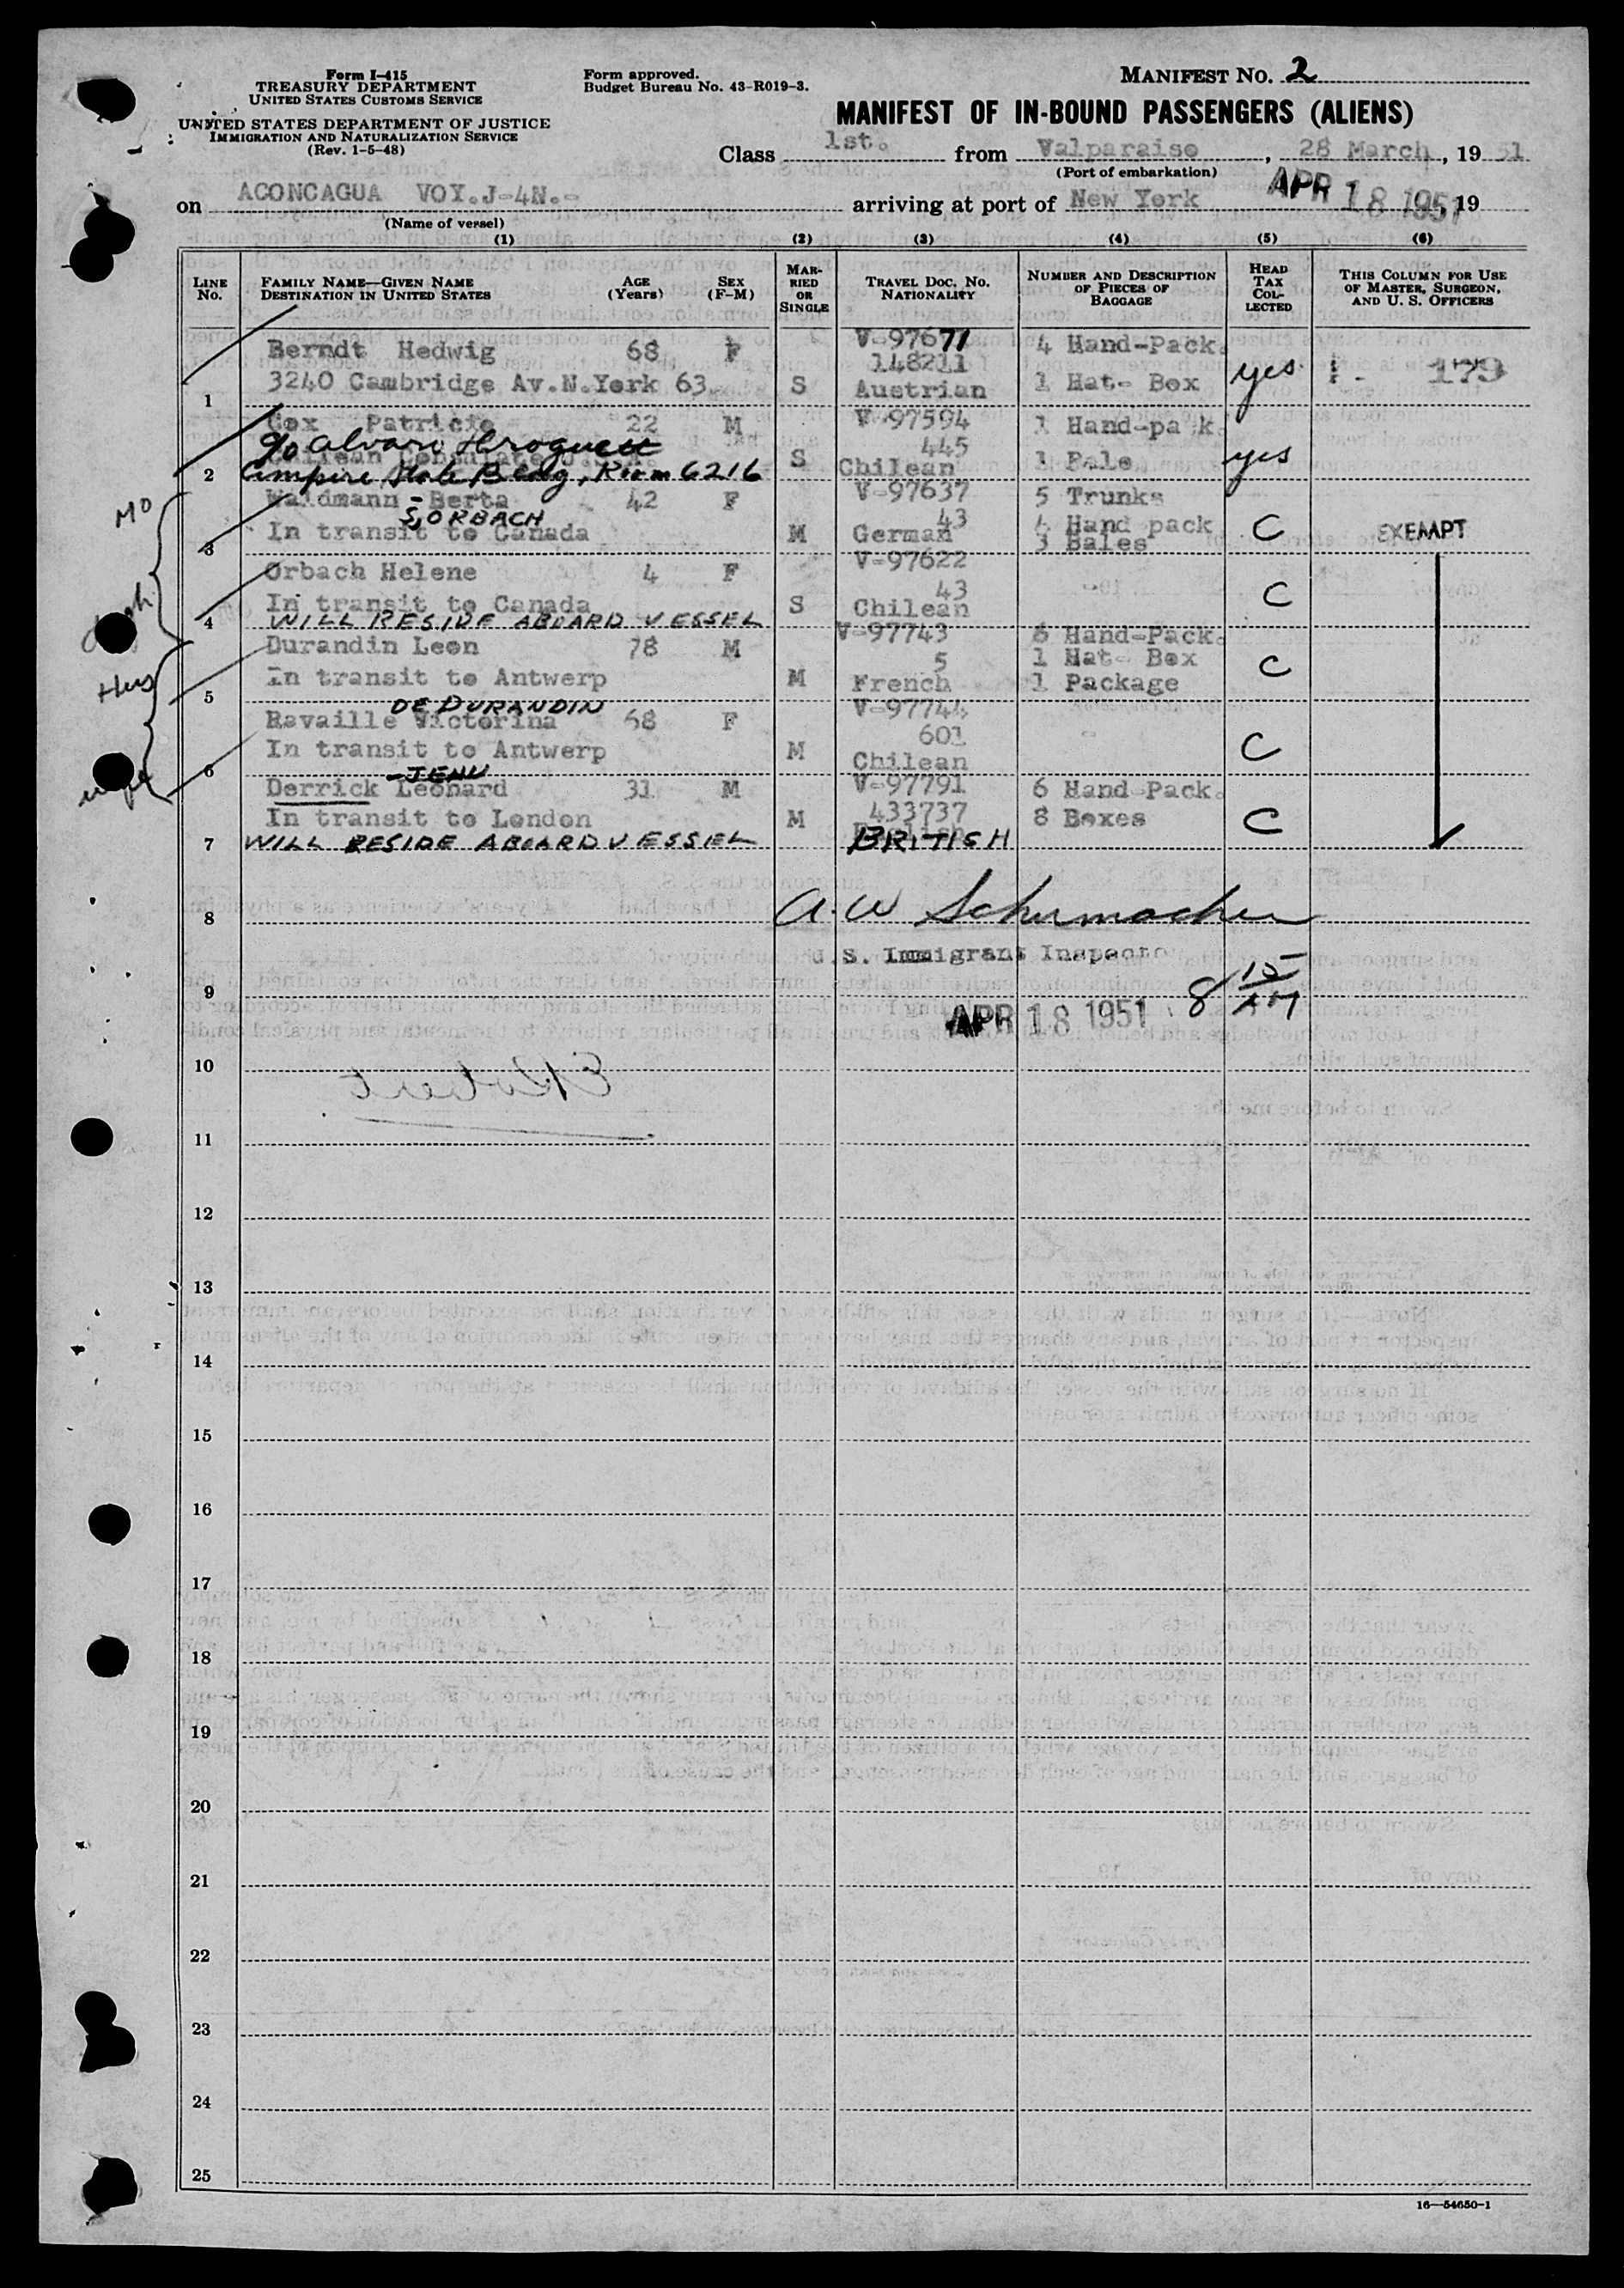 Form I-415
TREASURY DEPARTMENT
UNITED STATES CUSTOMS SERVICE
UNITED STATES DEPARTMENT OF JUSTICE
IMMIGRATION AND NATURALIZATION SERVICE
(Rev. 1-5-48)
Form approved.
Budget Bureau No. 43-R019-3.
MANIFEST NO. 2
MANIFEST OF IN-BOUND PASSENGERS (ALIENS)
Class 1st. from Valparaiso, 28 March, 19 51
(Port of embarkation)
on ACONCAGUA VOY.J-4N.- arriving at port of New York APR 18 1951, 19
(Name of vessel)
(1) (2) (3) (4) (5) (6)
LINE No. FAMILY NAME—GIVEN NAME DESTINATION IN UNITED STATES AGE (Years) SEX (F-M) MARRIED OR SINGLE TRAVEL DOC. NO. NATIONALITY NUMBER AND DESCRIPTION OF PIECES OF BAGGAGE HEAD TAX COLLECTED THIS COLUMN FOR USE OF MASTER, SURGEON, AND U. S. OFFICERS
Berndt Hedwig 68 F V-97671 4 Hand-Pack.
148211
1 3240 Cambridge Av.N.York 63. S Austrian 1 Hat- Box yes 179
Cox Patricio 22 M V-97594 1 Hand-pack
c/o Alvaro 445
Chilean Consulate
2 Empire State Bldg, Room 6216 S Chilean 1 Bale yes
Waldmann - Berta 42 F V-97637 5 Trunks
Mo
S, ORBACH 43 4 Hand pack
3 In transit to Canada M German 3 Bales C EXEMPT
Orbach Helene 4 F V-97622
43
4 In transit to Canada S Chilean C
WILL RESIDE ABOARD VESSEL
Durandin Leon 78 M V-97743 6 Hand-Pack.
Hus
5 1 Hat- Box
5 In transit to Antwerp M French 1 Package C
DE DURANDIN
Ravaille Victorina 68 F V-97744
601
6 In transit to Antwerp M Chilean C
wife
-JENU
Derrick Leonard 31 M V-97791 6 Hand-Pack.
In transit to London M 433737 8 Boxes C
7 WILL RESIDE ABOARD VESSEL BRITISH
8 A. W Schumacher
U.S. Immigrant Inspector
9 APR 18 1951 8 15 AM
10
11
12
13
14
15
16
17
18
19
20
21
22
23
24
25
16—54650-1